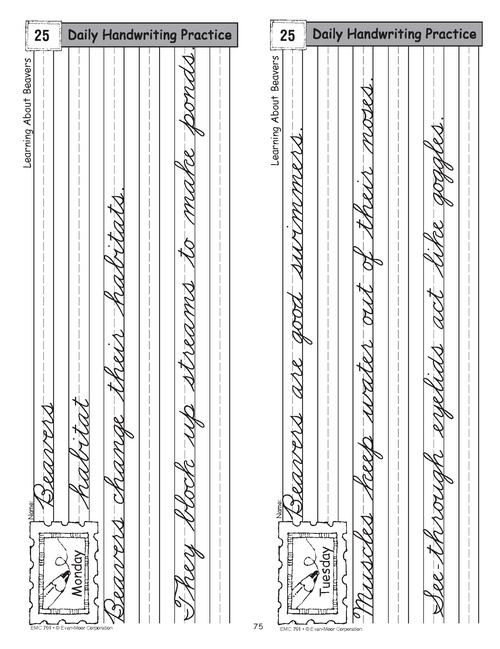 25 Daily Handwriting Practice
Learning About Beavers
Name:
Monday
Beavers
habitat
Beavers change their habitats.
They block up streams to make ponds.
EMC 791 • © Evan-Moor Corporation
75
25 Daily Handwriting Practice
Learning About Beavers
Name:
Tuesday
Beavers are good swimmers.
Muscles keep water out of their noses.
See-through eyelids act like goggles.
EMC 791 • © Evan-Moor Corporation